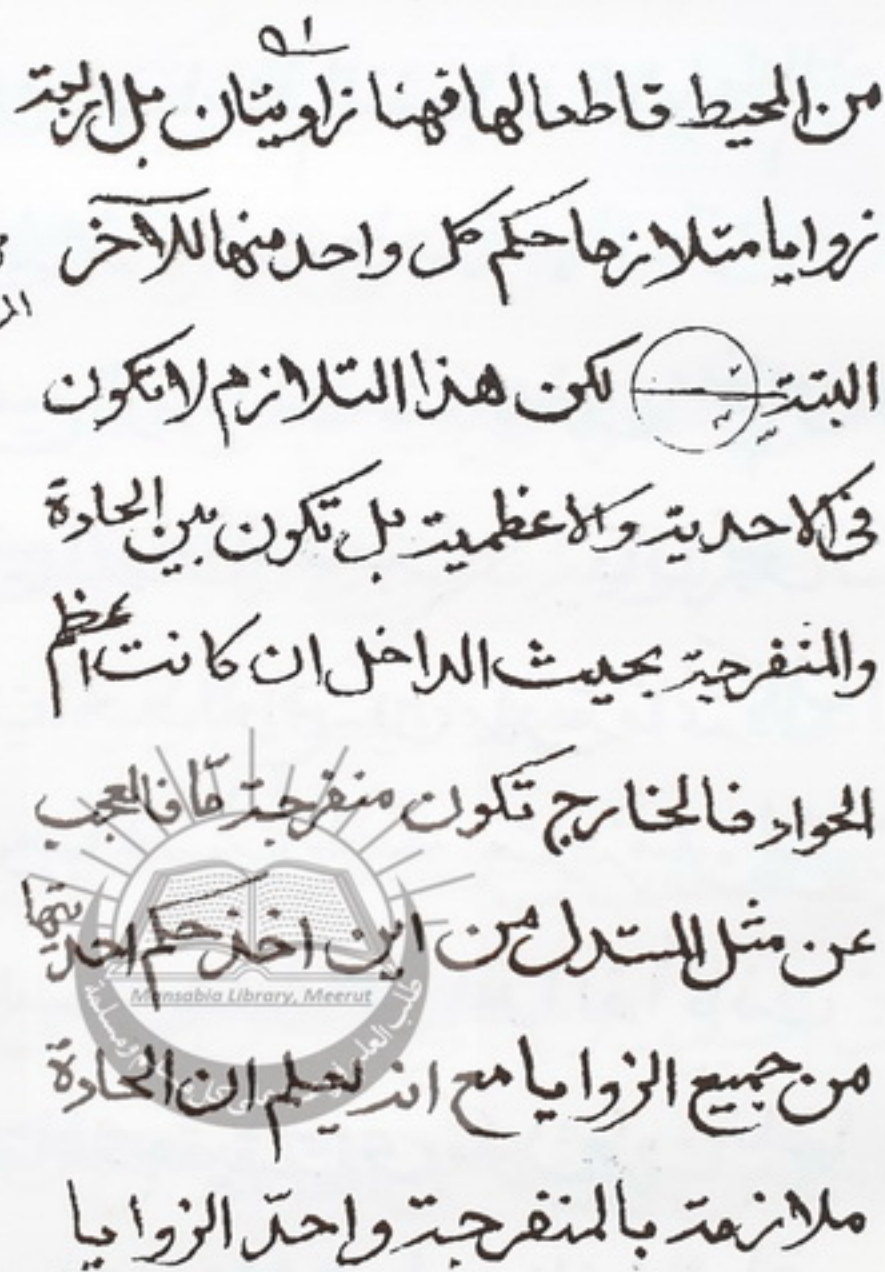 ٩١
من المحيط قاطعا لها فهنا زاويتان بل اربعة
زوايا متلازما حكم كل واحد منها للآخر
البتة لكن هذا التلازم لا تكون
فى الاحدية والاعظمية بل تكون بين الحادة
والمنفرجة بحيث الداخل ان كانت اعظم
الحواد فالخارج تكون منفرجة مّا فالعجب
عن مثل المستدل من اين اخذ حكم احديتها
من جميع الزوايا مع انه يعلم ان الحادة
ملازمة بالمنفرجة واحدّ الزوايا
Mansabia Library, Meerut